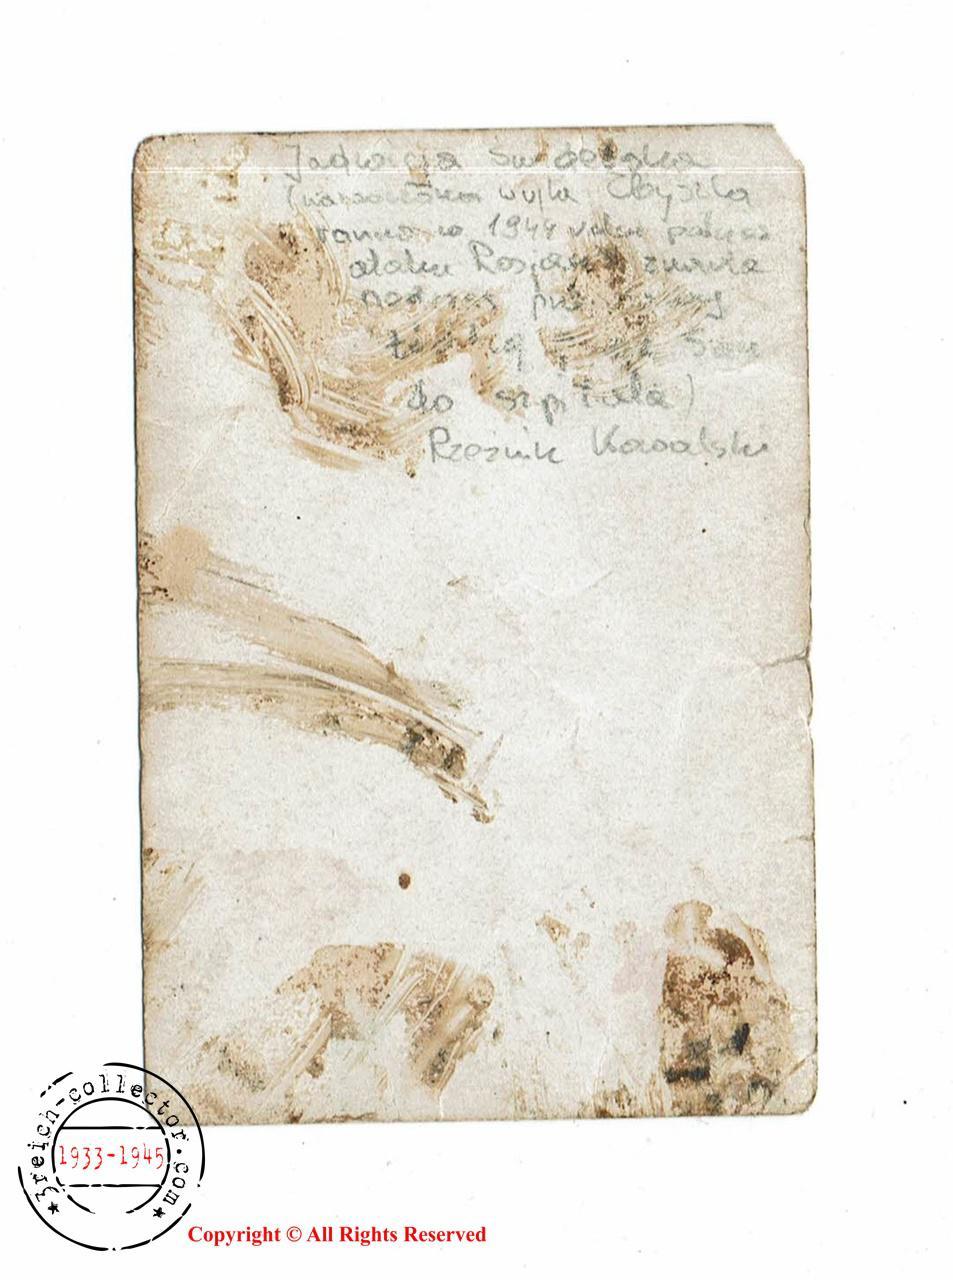 Jadwiga
(narzeczona wujka Zbyszka
ranna w 1944 roku podczas
ataku Rosjan zmarła
podczas
łódką San
do szpitala)
Rzeźnik Kowalski
3reich-collector.com
1933-1945
Copyright © All Rights Reserved